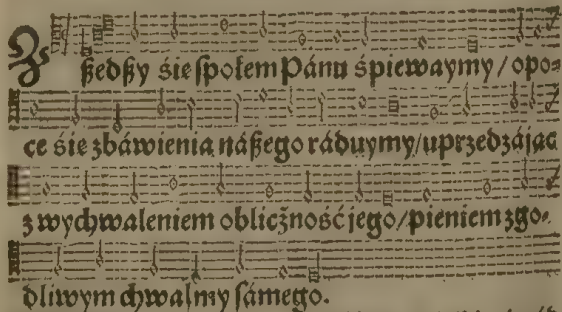 Zßedßy śie ſpołem Pánu śpiewaymy / opo⸗
ce śie zbáwienia náßego ráduymy/uprzedzáiąc
z wychwaleniem obliczność jego/pieniem zgo⸗
dliwym chwalmy ſámego.